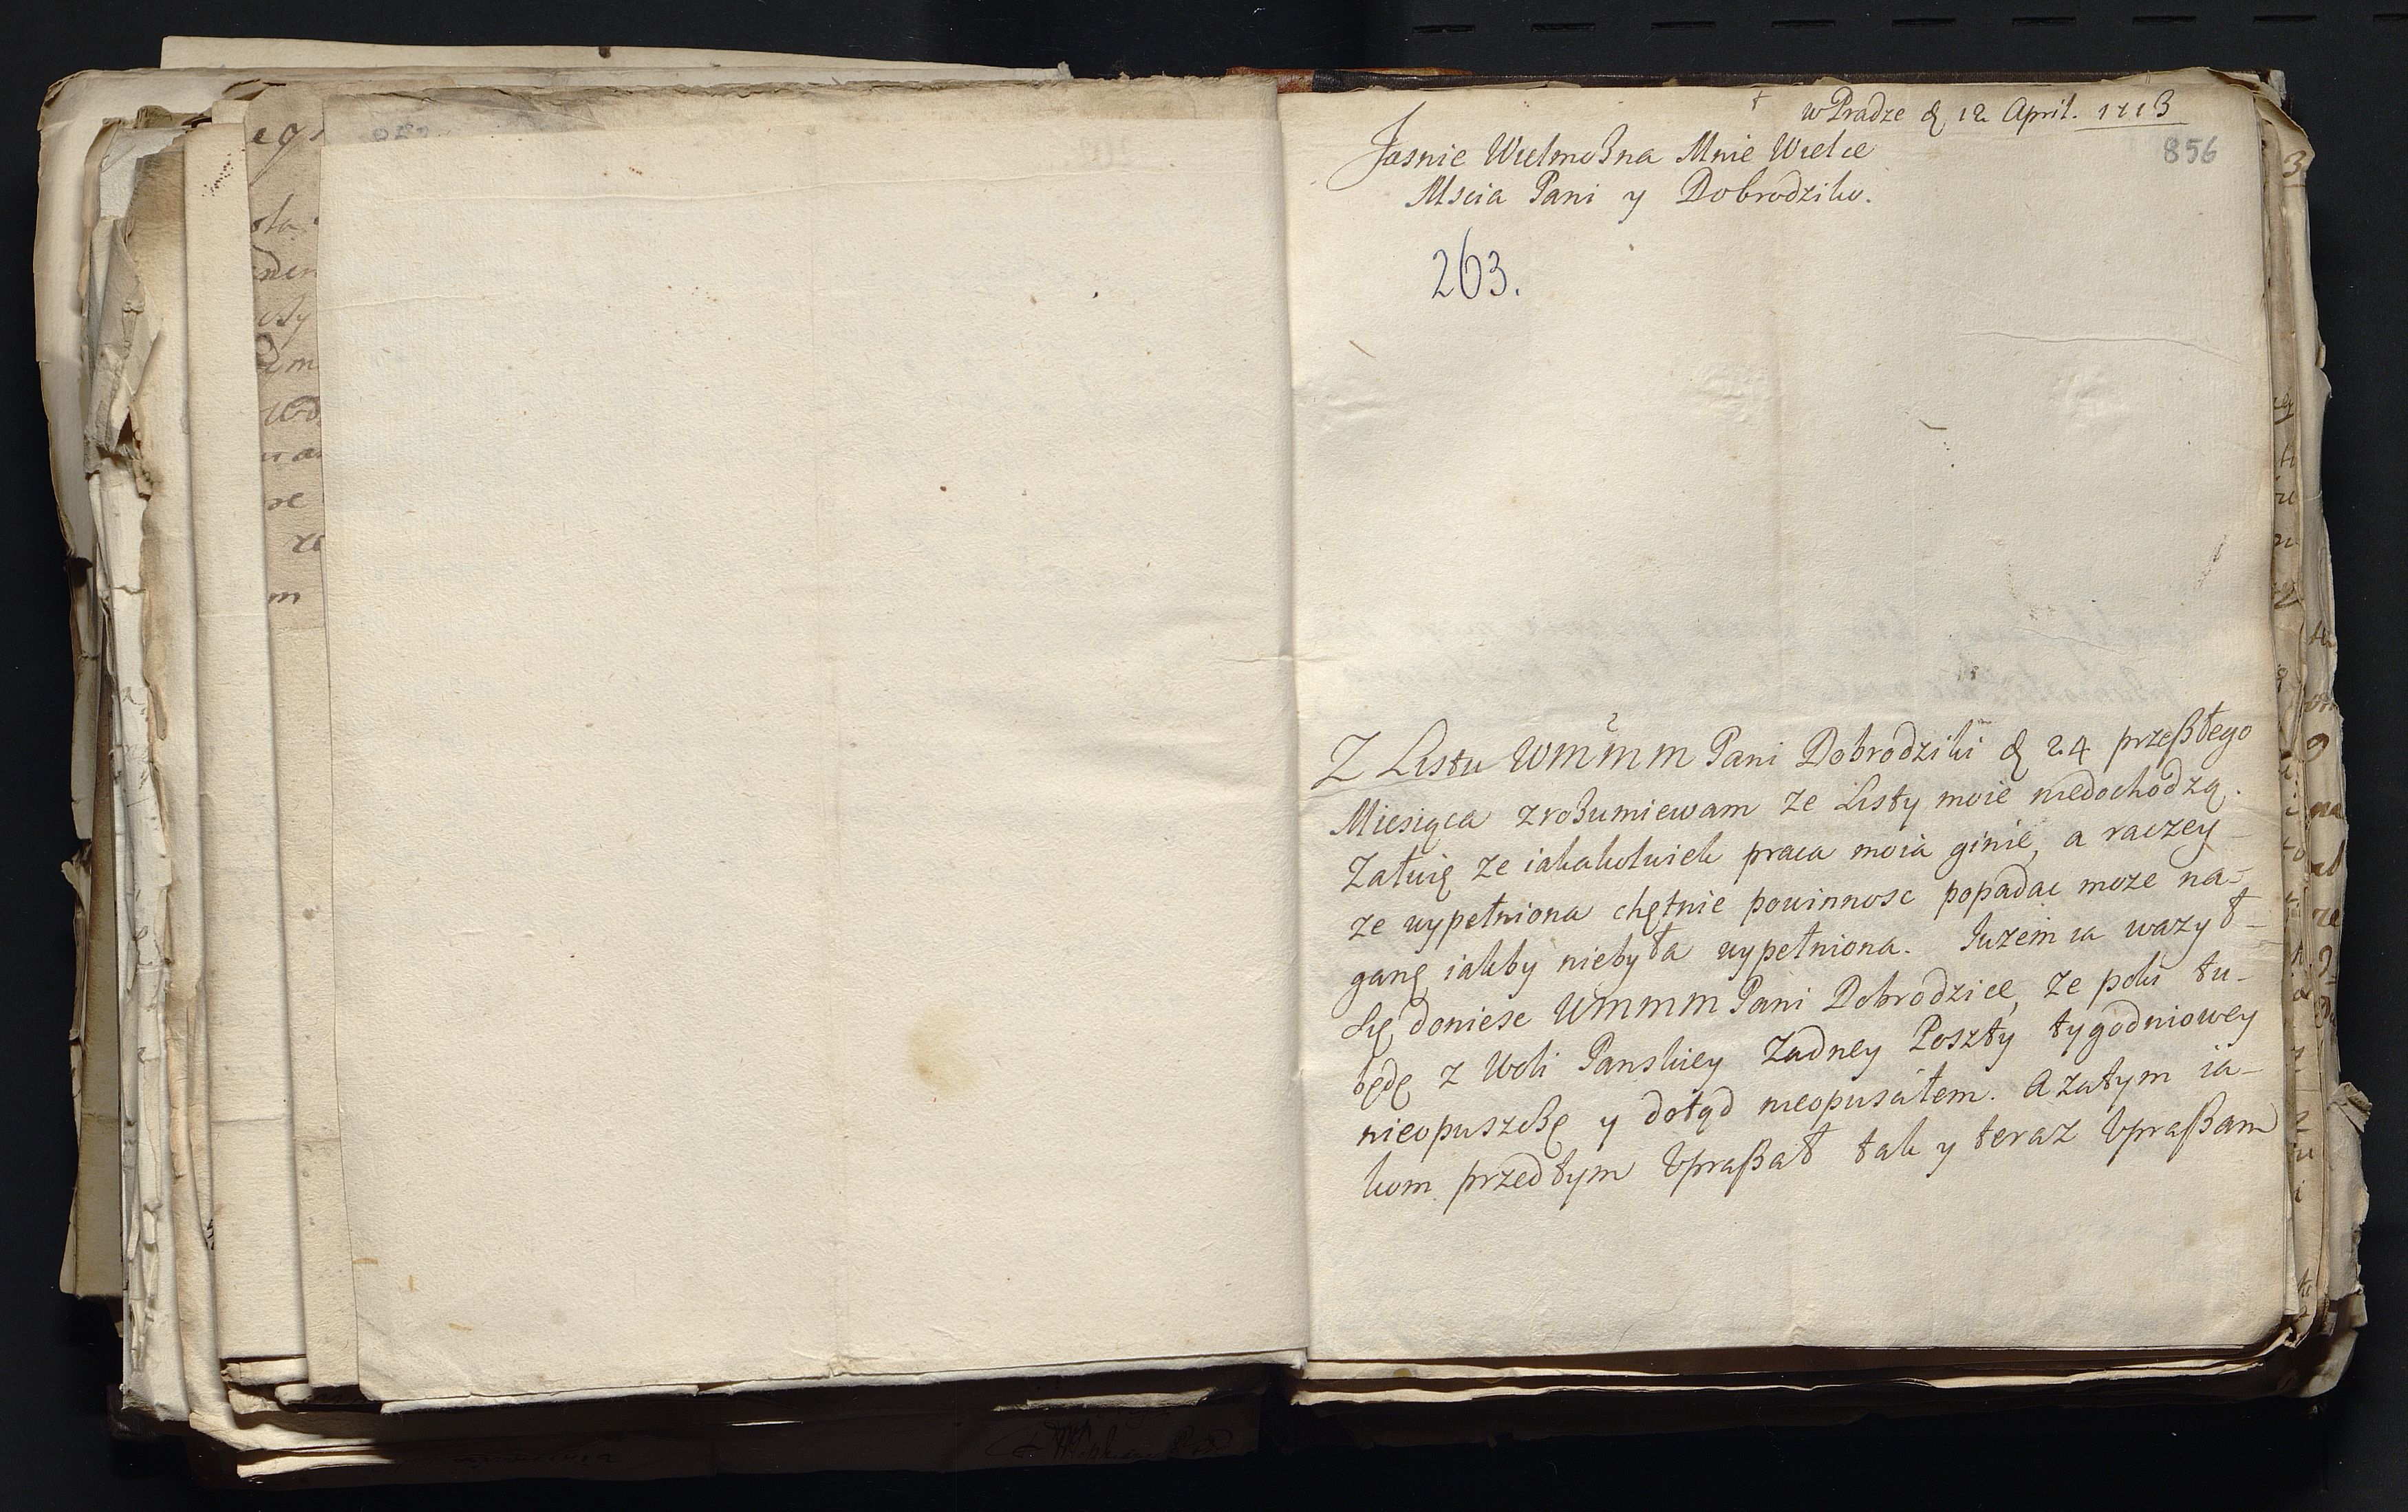 w Pradze d 12 April. 1713
856
Jasnie Wielmożna Mnie Wielce
Mscia Pani y Dobrodziko.
263.
Z Listu WMMM Pani Dobrodziki d 24 przeßłego
Miesiąca zrozumiewam ze Listy moie niedochodzą.
Załuię ze iakakolwiek praca moia ginie, a raczey
ze wypełniona chętnie powinnosc popadac moze na-
ganę iakby niebyła wypełniona. Juzem ia wazył
Się doniese WMMM Pani Dobrodzice, ze poki tu
będę z Woli Panskiey Zadney Poszty tygodniowey
nieopuszczę y dotąd nieopusciłem. A zatym ia-
kom przedtym Upraßał tak y teraz Upraßam